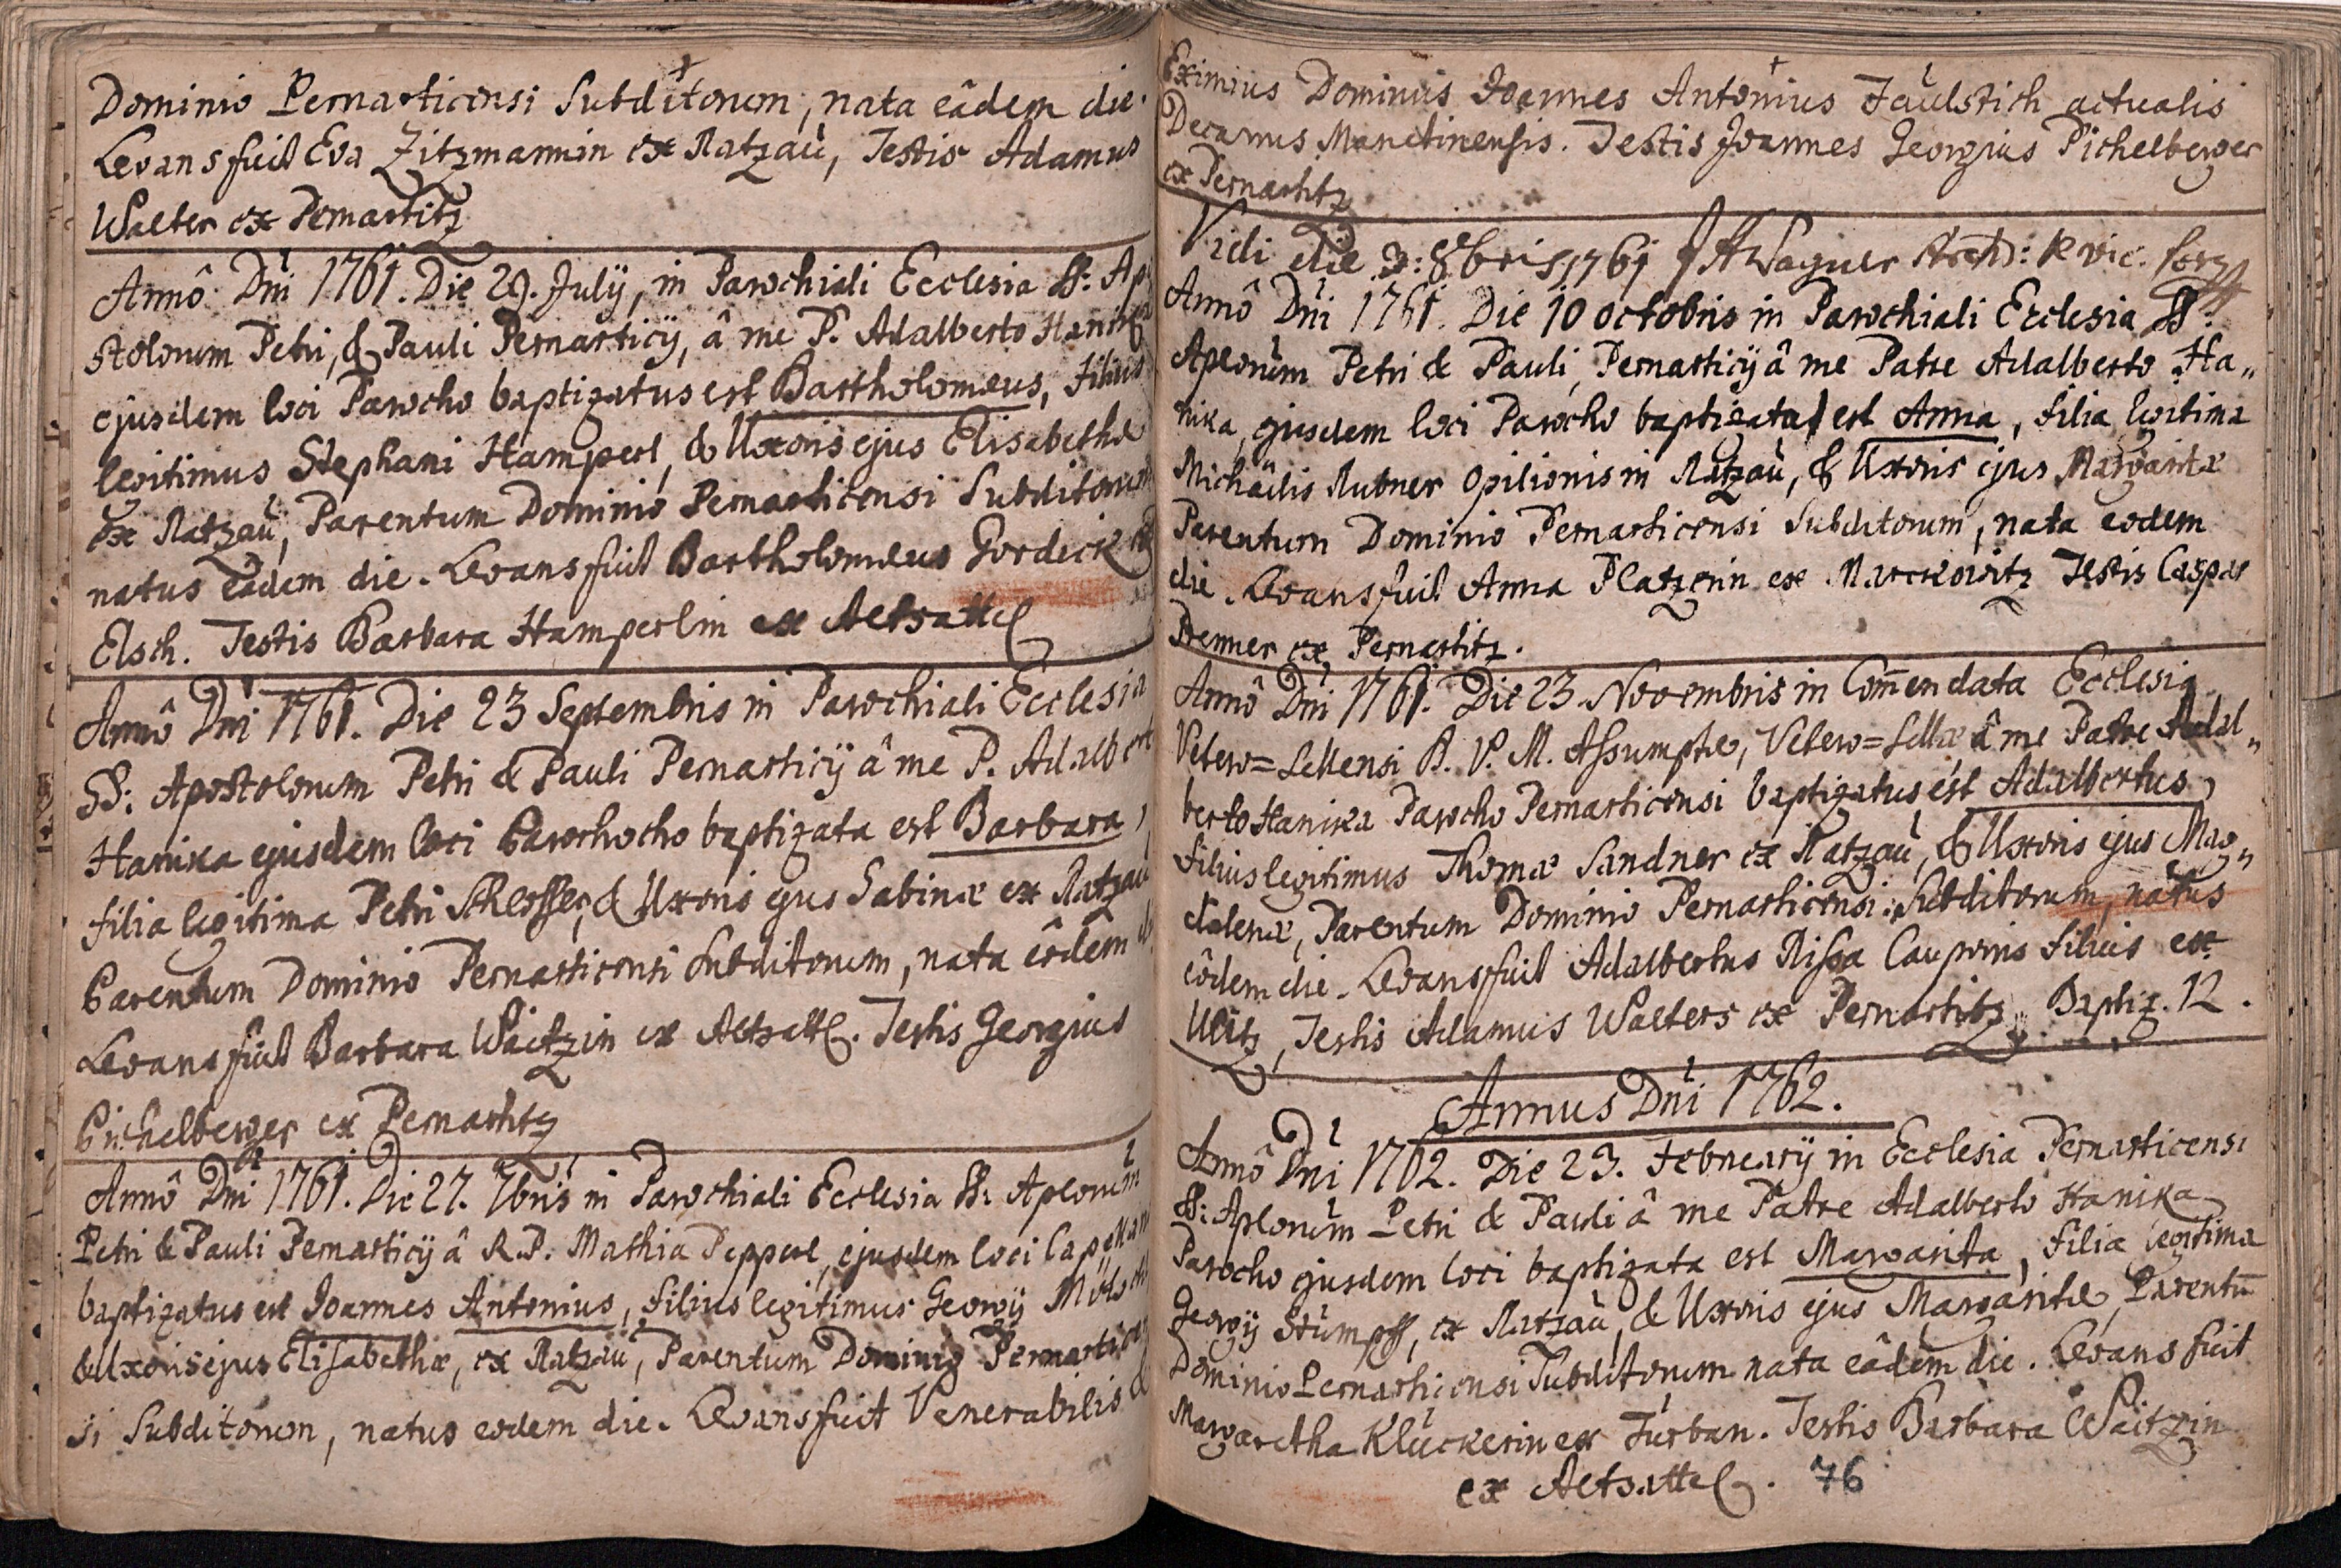 Dominio Pernarticensi Subditorum, nata eâdem die.
Levans fuit Eva Zitzmannin ex Ratzau, Testis Adamus
Walter ex Pernartitz
Annô Dni 1761. Die 29. July, in Parochiali Ecclesia SS: Apo
stolorum Petri, & Pauli Pernarticÿ, â me P. Adalberto Hanika
ejusdem loci Parocho baptizatus est Bartholomæus, filius
legitimus Stephani Hamperl, & Uxoris ejus Elisabethæ
ex Ratzau, Parentum Dominio Pernarticensi Subditorum
natus eâdem die. Levans fuit Bartholomæus Gordeick ex
Elsch. Testis Barbara Hamperlin ex Altsattel
Annô Dni 1761. Die 23 Septembris in Parochiali Ecclesia
SS: Apostolorum Petri & Pauli Pernarticÿ â me P. Adalberto
Hanika ejusdem loci Parochocho baptizata est Barbara,
filia legitima Petri Schlosser, & Uxoris ejus Sabinæ ex Ratzau
Parentum Dominio Pernarticensi Subditorum, nata eôdem
Levans fuit Barbara Waitzin ex Altsattel. Testis Georgius
Pichelberger ex Pernartitz
Annô Dni 1761. Die 27. 7bris in Parochiali Ecclesia SS: Aplorum
Petri & Pauli Pernarticÿ â R.P. Mathia Pepperl, ejusdem loci Capellano
baptizatus est Joannes Antonius, filius legitimus Georgÿ
& Uxoris ejus Elisabethæ, ex Ratzau, Parentum Dominio Pernarticen
si Subditorum, natus eodem die. Levans fuit Venerabilis &
Eximius Dominus Joannes Antonius Faulstich actualis
Decanus Manetinensis. Testis Joannes Georgius Pichelberger
ex Pernartitz
Vidi die 3: 8bris 1761 J A Wagner Vic: for
Annô Dni 1761. Die 10 octobris in Parochiali Ecclesia SS:
Aplorum Petri & Pauli, Pernarticÿ â me Patre Adalberto Ha„
nika, ejusdem loci Parocho baptizata est Anna, filia legitima
Michäelis Rubner Opilionis in Ratzau, & Uxoris ejus Margaritæ
Parentum Dominio Pernarticensi Subditorum, nata eodem
die. Levans fuit Anna Platzerin ex Marckowitz Testis Caspar
Prenner ex Pernartitz.
Annô Dni 1761. Die 23 Novembris in Com̄endata Ecclesia
Vetero=Sellensi B. V. M. Assumptæ, Vetero=Sellæ â me Patre Adal„
berto Hanika Parocho Pernarticensi baptizatus est Adalbertus,
filius legitimus Thomæ Sandner ex Ratzau, & Uxoris ejus Mag„
dalenæ, Parentum Dominio Pernarticensi Subditorum, natus
eôdem die. Levans fuit Adalbertus Rissa Cauponis filius ex
Ulitz, Testis Adamus Walters ex Pernartitz Baptiz. 12.
Annus Dni 1762.
Annô Dni 1762. Die 23. Februarÿ in Ecclesia Pernarticensi
SS: Aplorum Petri & Pauli â me Patre Adalberto Hanika
Parocho ejusdem loci baptizata est Margarita, filia legitima
Georgÿ Stümpff, ex Ratzau, & Uxoris ejus Margaritæ, Parentū
Dominio Pernarticensi Subditorum nata eâdem die. Levans fuit
Margaretha Kluckerin ex Turban. Testis Barbara Waitzin
ex Altsattel. 76